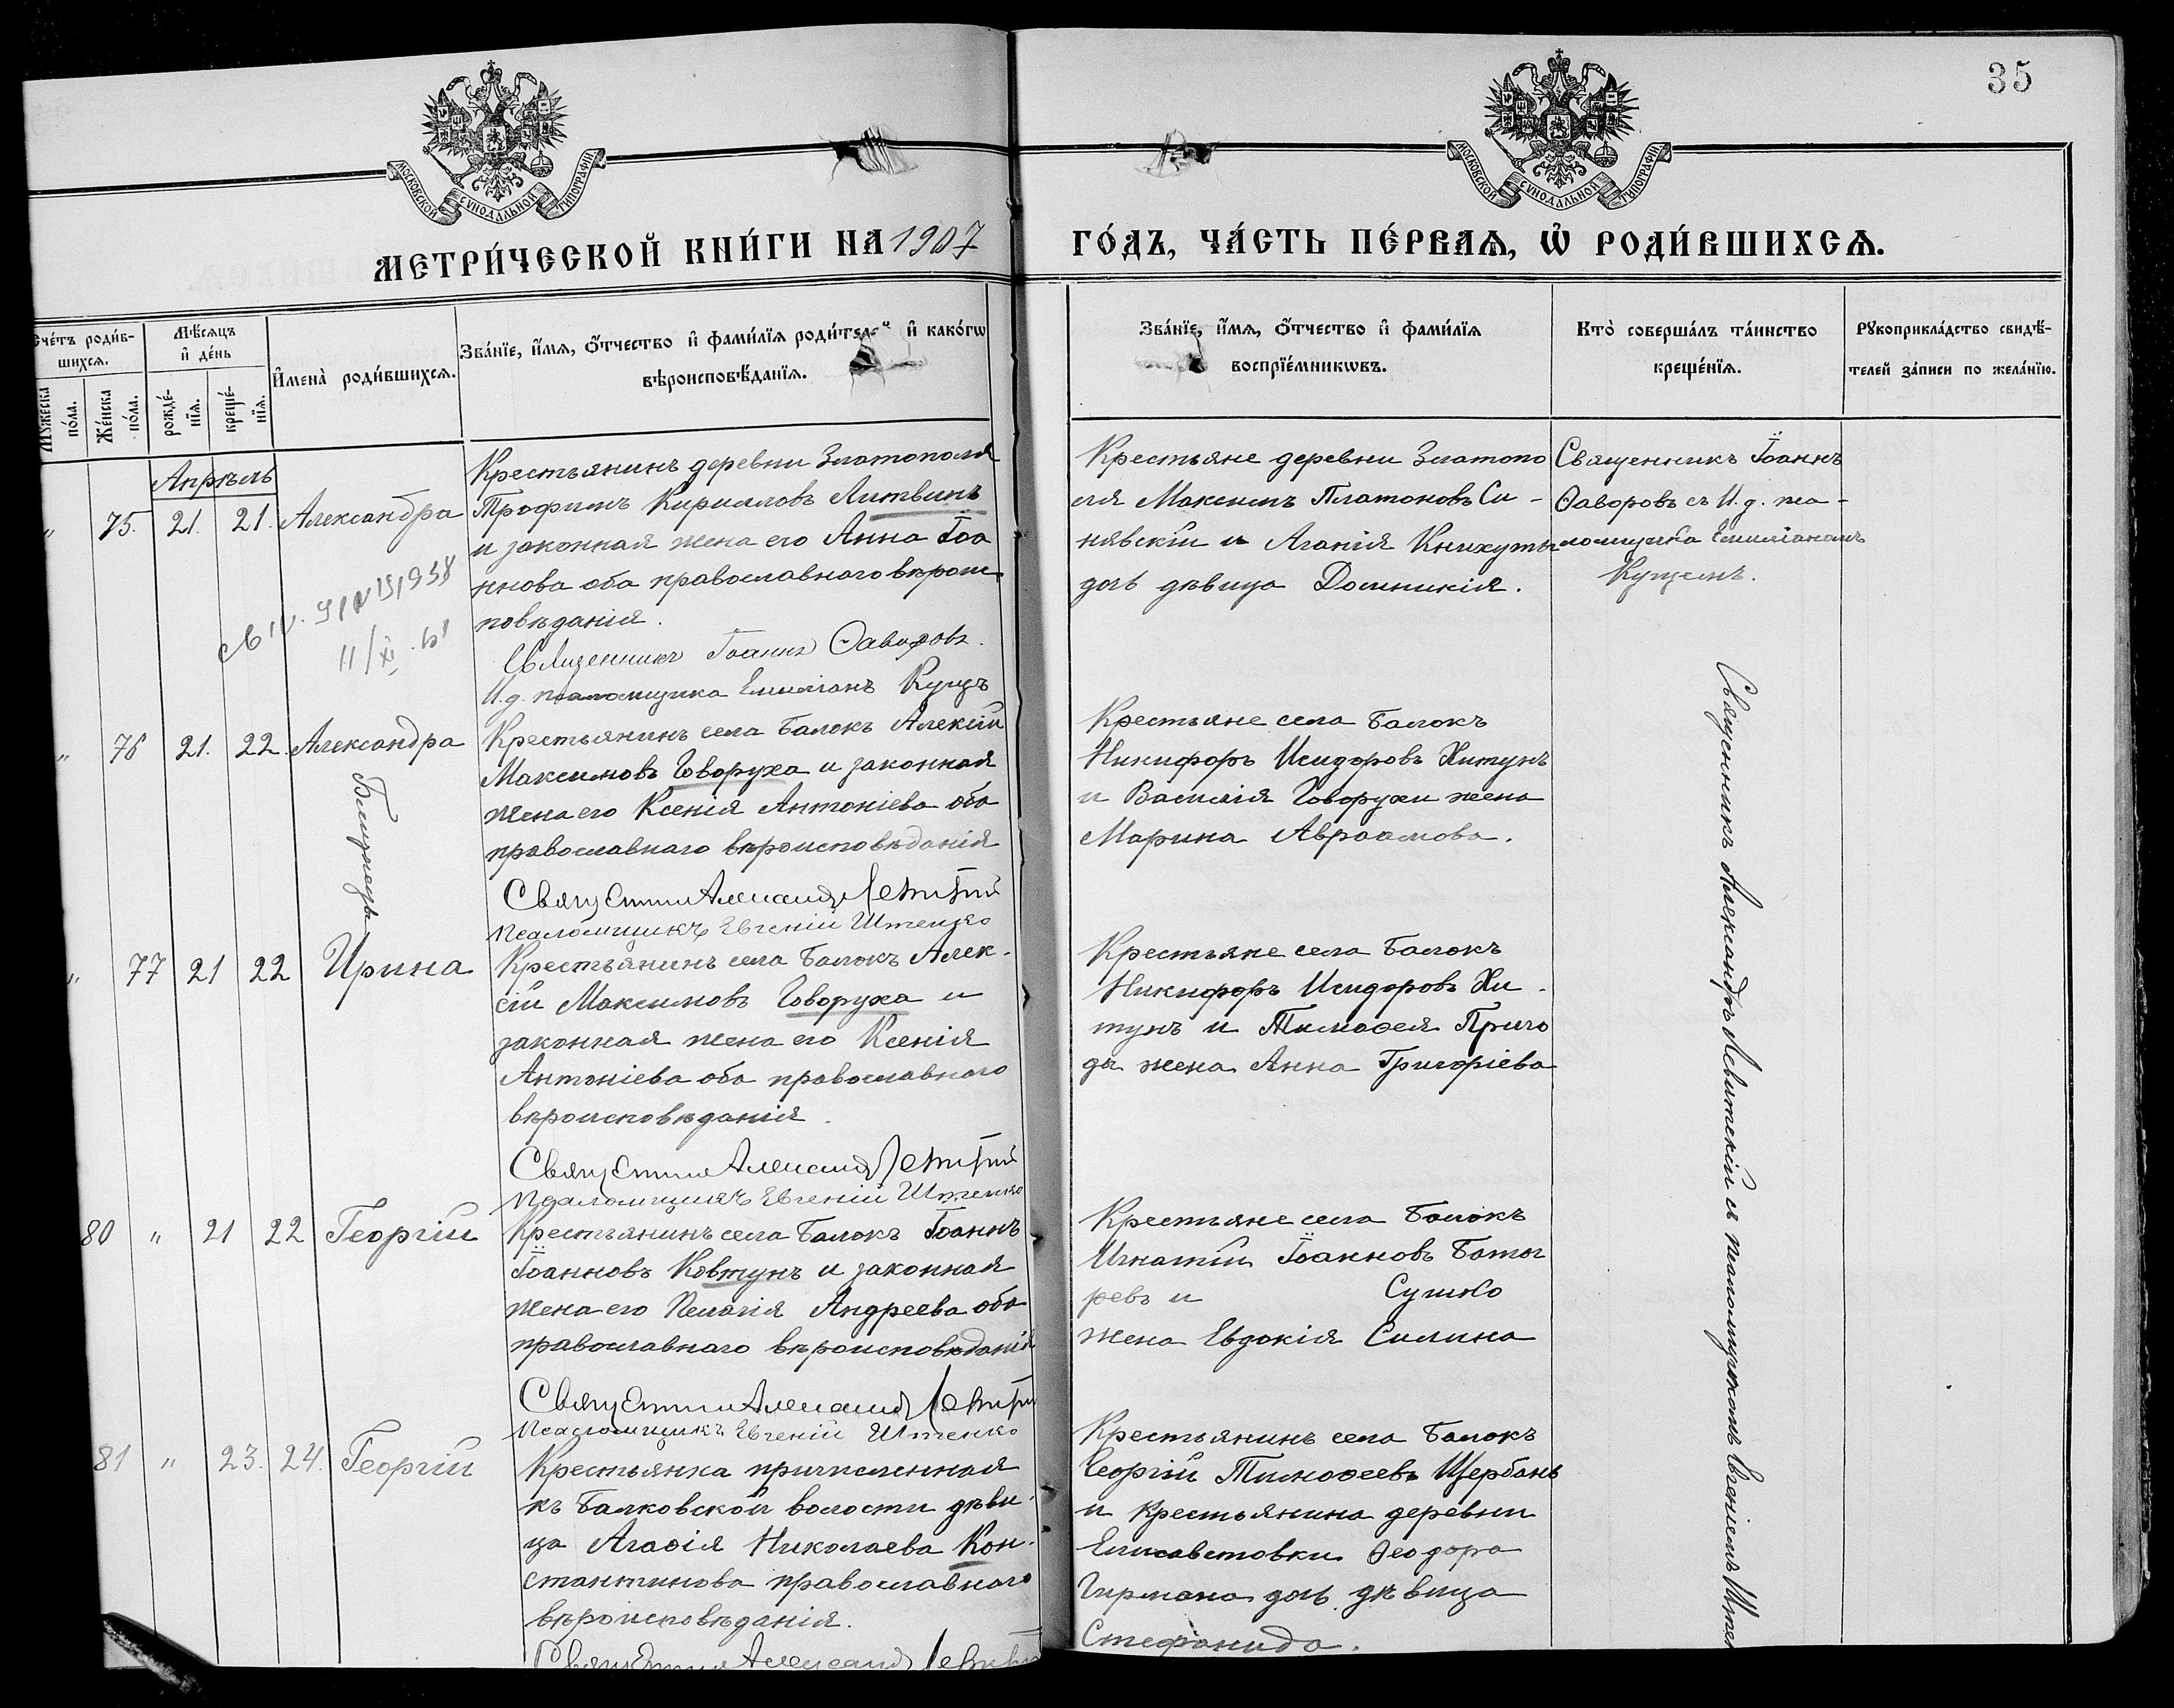 35
МОСКОВСКОЙ СѴНОДАЛЬНОЙ ТИПОГРАФІИ
МОСКОВСКОЙ СѴНОДАЛЬНОЙ ТИПОГРАФІИ
МЕТРИ́ЧЕСКОЙ КНИ́ГИ НА 1907 ГО́ДЪ, ЧА́СТЬ ПЕ́РВАѦ, Ѽ РОДИ́ВШИХСѦ.
Сче́тъ роди́в-
шихсѧ.
Мꙋжеска по́ла.
Же́нска по́ла.
Мѣ́сѧцъ
и҆ де́нь
рожде́-
нїѧ.
креще́-
нїѧ.
И҆мена̀ роди́вшихсѧ.
Зва́нїе, и҆́мѧ, ѻ҆́тчество и҆ фами́лїѧ роди́телей и҆ како́гѡ
вѣроисповѣ́данїѧ.
Зва́нїе, и҆́мѧ, ѻ҆́тчество и҆ фами́лїѧ
воспрїе́мникѡвъ.
Кто̀ соверша́лъ та́инство
креще́нїѧ.
Рꙋкоприкла́дство свидѣ́-
телей за́писи по жела́нїю.
Апрѣль
„ 75. 21. 21. Александра
Крестьянинъ деревни Златополя
Трофимъ Кириллов Литвинъ
и законная жена его Анна Іоа
ннова оба православнаго вѣроис
повѣданія.
Священникъ Іоаннъ Ѳаворовъ.
И.д. псаломщика Емиліанъ Кущъ
Крестьяне деревни Златопо
ля Максимъ Платоновъ Си-
нявскій и Агапія Книхуты
дочь дѣвица Домникія.
Священникъ Іоаннъ
Ѳаворовъ съ И.д. пса-
ломщика Емиліаномъ
Кущемъ.
11/XI.61
„ 76 21. 22. Александра
Близнецы
Крестьянинъ села Балокъ Алексій
Максимовъ Говоруха и законная
жена его Ксенія Антоніева оба
православнаго вѣроисповѣданія
Псаломщикъ Евгеній Штенко
Крестьяне села Балокъ
Никифоръ Исидоровъ Хитунъ
и Василія Говорухи жена
Марина Авраамова.
Священникъ Александръ Левитскій съ псаломщикомъ Евгеніемъ
„ 77 21 22 Ирина
Крестьянинъ села Балокъ Алек-
сій Максимовъ Говоруха и
законная жена его Ксенія
Антоніева оба православнаго
вѣроисповѣданія.
Псаломщикъ Евгеній Штенко
Крестьяне села Балокъ
Никифоръ Исидоровъ Хи-
тунъ и Тимоѳея Приго
ды жена Анна Григоріева
80 „ 21 22 Георгій
Крестьянинъ села Балокъ Іоаннъ
Іоанновъ Ковтунъ и законная
жена его Пелагія Андреева оба
православнаго вѣроисповѣданія
Псаломщикъ Евгеній Штенко
Крестьяне села Балокъ
Игнатій Іоанновъ Батог
ревъ и Сушко
жена Евдокія Силина
81 „ 23. 24. Георгій
Крестьянка приписленная
къ Балковской волости дѣви-
ца Агаѳія Николаева Кон-
стантинова православнаго
вѣроисповѣданія.
Крестьянинъ села Балокъ
Георгій Тимоѳеевъ Щербань
и Крестьянина деревни
Елисаветовки Ѳеодора
Гирмана дочь дѣвица
Стефанида.